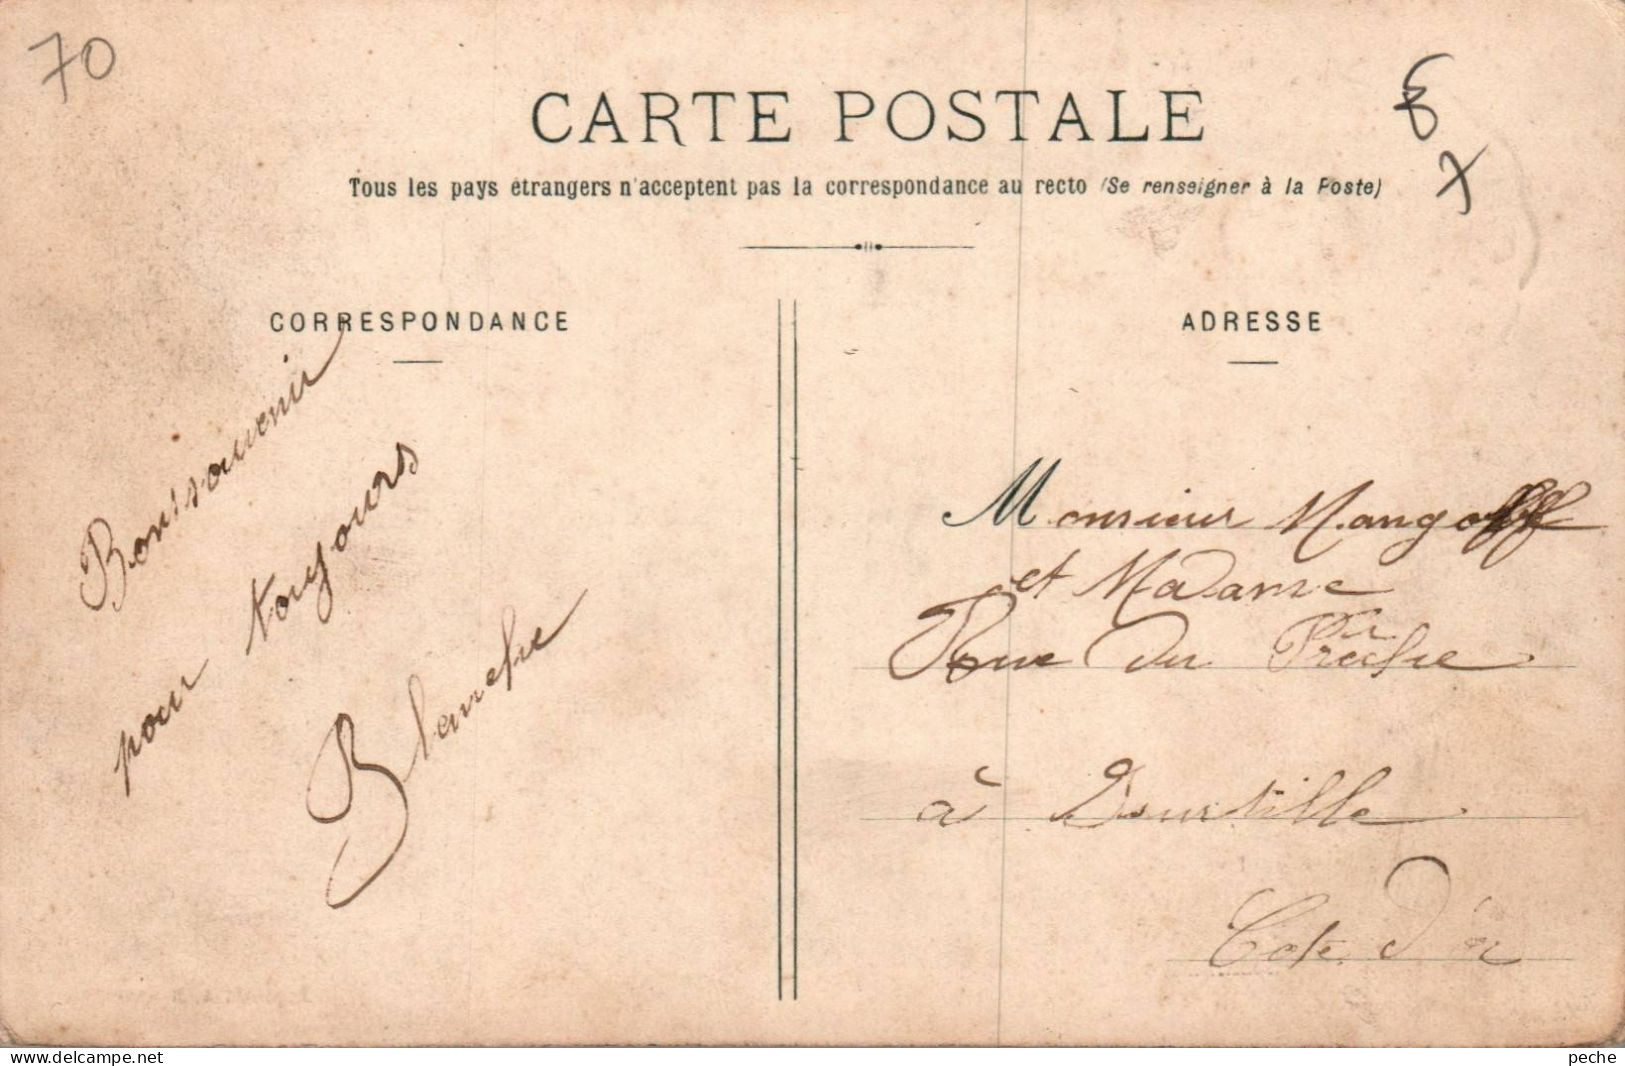 70
CARTE POSTALE
Tous les pays étrangers n'acceptent pas la correspondance au recto (Se renseigner à la Poste)
CORRESPONDANCE
Bon souvenir
pour toujours
Blanche
ADRESSE
Monsieur Mangoff
et Madame
Rue du
à
Cote d'or
www.delcampe.net
peche